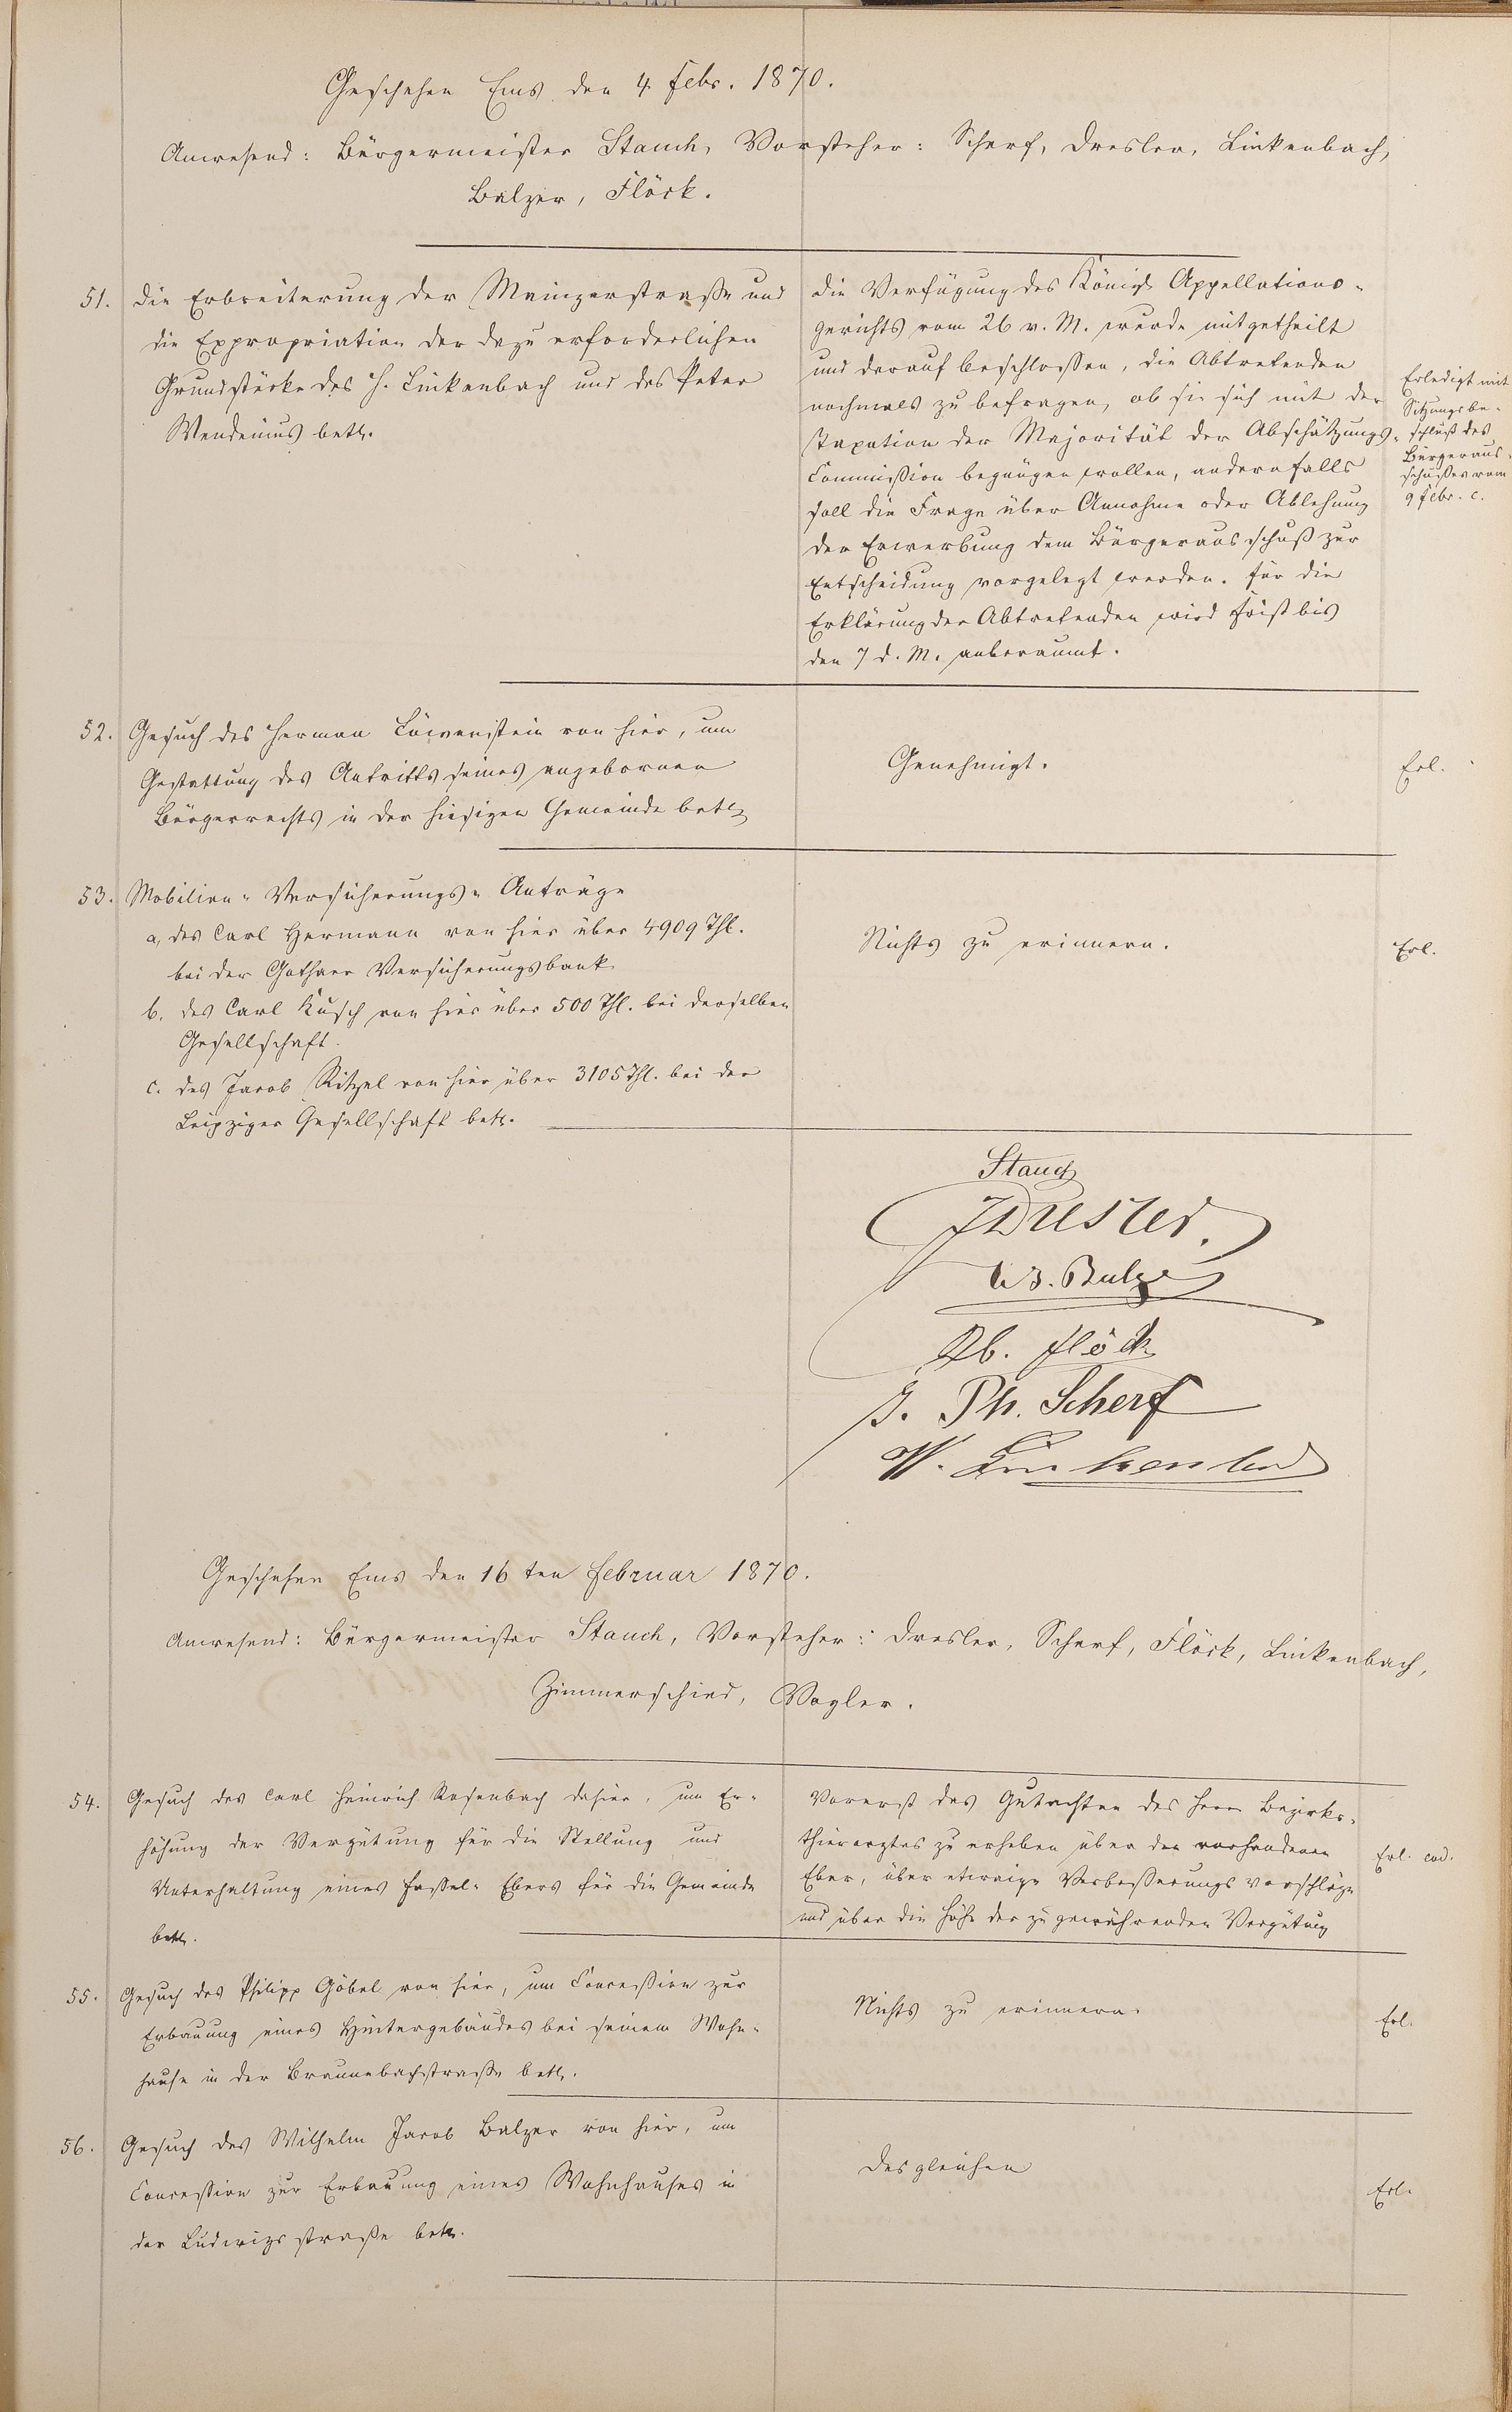 Geschehen Ems den 4 Febr. 1870.
Anwesend: Bürgermeister Stauch, Vorsteher: Scherf, Dresler, Linkenbach,
Balzer, Flöck.
51. Die Erbreiterung der Mainzerstraße und
die Expropriation der dazu erforderlichen
Grundstücke des H. Linkenbach und des Peter
Wendenius betr.
Die Verfügung des Königl. Appellations-
gerichts vom 26 v. M. wurde mitgetheilt
und darauf beschlossen, die Abtretenden
nochmals zu befragen, ob sie sich mit der
Taxation der Majorität der Abschätzungs-
Commission begnügen wollen, andernfalls
soll die Frage über Annahme oder Ablehnung
der Erwerbung dem Bürgerausschuß zur
Entscheidung vorgelegt werden. Für die
Erklärung der Abtretenden wird Frist bis
den 7 d. M. anberaumt.
Erledigt mit
Sitzungsbe-
schluß des
Bürgeraus-
schusses vom
9 Febr. c.
52. Gesuch des Herman Löwenstein von hier, um
Gestattung des Antritts seines angebornen
Bürgerrechts in der hiesigen Gemeinde betr.
Genehmigt.
Erl.
53. Mobilien-Versicherungs-Anträge
a, des Carl Hermann von hier über 4909 Thl.
bei der Gothaer Versicherungsbank
b. des Carl Kusch von hier über 500 Thl. bei derselben
Gesellschaft.
c. des Jacob Ritzel von hier über 3105 Thl. bei der
Leipziger Gesellschaft betr.
Nichts zu erinnern.
Erl.
Stauch
J Dresler.
W. Balzer
Ph. Flöck
J. Ph. Scherf
W. Linkenbach
Geschehen Ems den 16ten Februar 1870.
Anwesend: Bürgermeister Stauch, Vorsteher: Dresler, Scherf, Flöck, Linkenbach,
Zimmerschied, Vogler.
54. Gesuch des Carl Heinrich Rosenbach dahier, um Er-
höhung der Vergütung für die Stellung und
Unterhaltung eines Fassel-Ebers für die Gemeinde
betr.
Vorerst das Gutachten des Herrn Bezirks-
thierarztes zu erheben über den vorhandenen
Eber, über etwaige Verbesserungsvorschläge
und über die Höhe der zu gewährenden Vergütung
Erl. cod.
55. Gesuch des Philipp Göbel von hier, um Concession zur
Erbauung eines Hintergebäudes bei seinem Wohn-
hause in der Braunebachstraße betr.
Nichts zu erinnern.
Erl.
56. Gesuch des Wilhelm Jacob Balzer von hier, um
Concession zur Erbauung eines Wohnhauses in
der Ludwigsstraße betr.
Desgleichen
Erl.